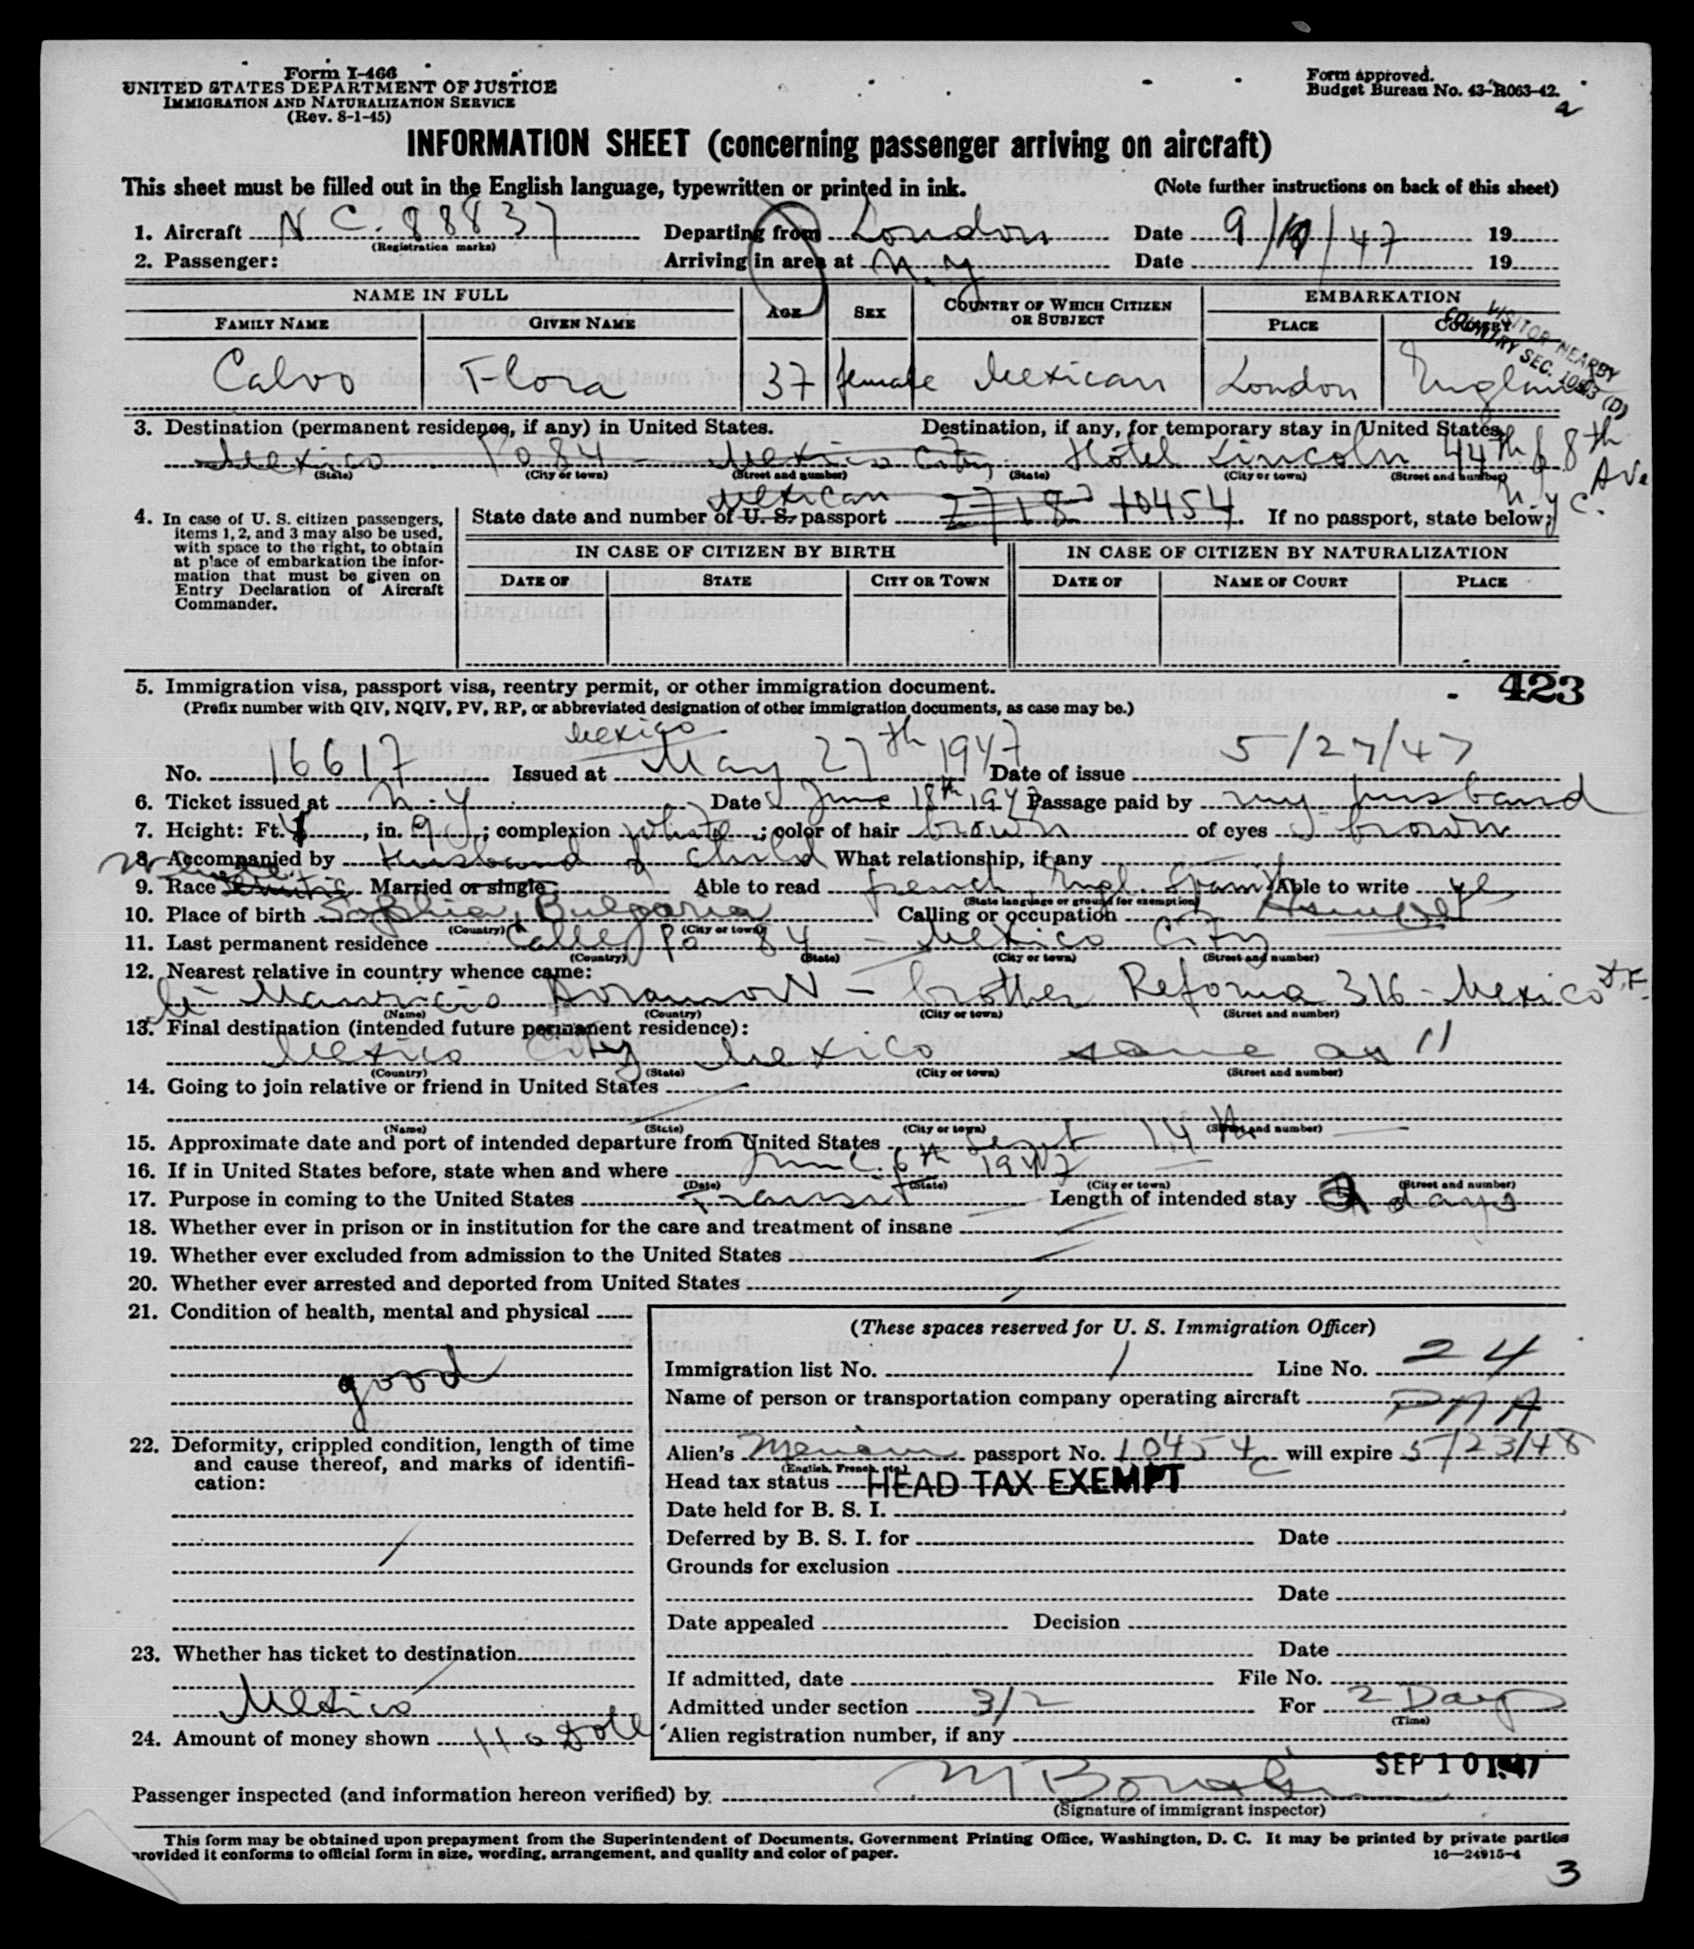 Form I-466
UNITED STATES DEPARTMENT OF JUSTICE
IMMIGRATION AND NATURALIZATION SERVICE
(Rev. 8-1-45)
Form approved.
Budget Bureau No. 43-R063-42.
2
INFORMATION SHEET (concerning passenger arriving on aircraft)
This sheet must be filled out in the English language, typewritten or printed in ink. (Note further instructions on back of this sheet)
1. Aircraft N C. 88837 Departing from London Date 9/ /47 19
(Registration marks)
2. Passenger: Arriving in area at N.Y Date 19
NAME IN FULL AGE SEX COUNTRY OF WHICH CITIZEN OR SUBJECT EMBARKATION
FAMILY NAME GIVEN NAME PLACE COUNTRY
VISITOR NEARBY
COUNTRY SEC. 10 3 (D)
Calvo Flora 37 female Mexican London England
3. Destination (permanent residence, if any) in United States. Destination, if any, for temporary stay in United States.
Mexico Po 84 - Mexico City Hotel Lincoln 44th & 8th Ave
(State) (City or town) (Street and number) (State) (City or town) (Street and number)
N.Y C.
Mexican
4. In case of U. S. citizen passengers, items 1, 2, and 3 may also be used, with space to the right, to obtain at place of embarkation the information that must be given on Entry Declaration of Aircraft Commander.
State date and number of U. S. passport 10454. If no passport, state below:
IN CASE OF CITIZEN BY BIRTH IN CASE OF CITIZEN BY NATURALIZATION
DATE OF STATE CITY OR TOWN DATE OF NAME OF COURT PLACE
5. Immigration visa, passport visa, reentry permit, or other immigration document. 423
(Prefix number with QIV, NQIV, PV, RP, or abbreviated designation of other immigration documents, as case may be.)
Mexico
No. 16617 Issued at May 27th 1947 Date of issue 5/27/47
6. Ticket issued at N.Y Date June 18th 1947 Passage paid by my husband
7. Height: Ft. , in. 9 ; complexion white ; color of hair brown of eyes brown
8. Accompanied by Husband & child What relationship, if any
9. Race Married or single Able to read french, Engl. Spanish Able to write yes
(State language or ground for exemption)
10. Place of birth Sophia, Bulgaria Calling or occupation
(Country) (City or town)
11. Last permanent residence Calle Po 84 - Mexico City
(Country) (State) (City or town) (Street and number)
12. Nearest relative in country whence came:
Mauricio - brother Reforma 316 - Mexico D.F.
(Name) (Country) (City or town) (Street and number)
13. Final destination (intended future permanent residence):
Mexico City Mexico same as 11
(Country) (State) (City or town) (Street and number)
14. Going to join relative or friend in United States
(Name) (State) (City or town) (Street and number)
15. Approximate date and port of intended departure from United States Sept 14th
16. If in United States before, state when and where June 6th 1947
(Date) (State) (City or town) (Street and number)
17. Purpose in coming to the United States Transit Length of intended stay days
18. Whether ever in prison or in institution for the care and treatment of insane
19. Whether ever excluded from admission to the United States
20. Whether ever arrested and deported from United States
21. Condition of health, mental and physical
good
22. Deformity, crippled condition, length of time and cause thereof, and marks of identification:
23. Whether has ticket to destination
Mexico
24. Amount of money shown Doll
(These spaces reserved for U. S. Immigration Officer)
Immigration list No. 1 Line No. 24
Name of person or transportation company operating aircraft PAA
Alien's Mexican passport No. 10454 will expire 5/23/48
(English, French, etc.)
Head tax status HEAD TAX EXEMPT
Date held for B. S. I.
Deferred by B. S. I. for Date
Grounds for exclusion
Date
Date appealed Decision
Date
If admitted, date File No.
Admitted under section 3/2 For 2 Days
(Time)
Alien registration number, if any
SEP 10 1947
Passenger inspected (and information hereon verified) by
(Signature of immigrant inspector)
This form may be obtained upon prepayment from the Superintendent of Documents, Government Printing Office, Washington, D. C. It may be printed by private parties
provided it conforms to official form in size, wording, arrangement, and quality and color of paper. 16—24915-4
3